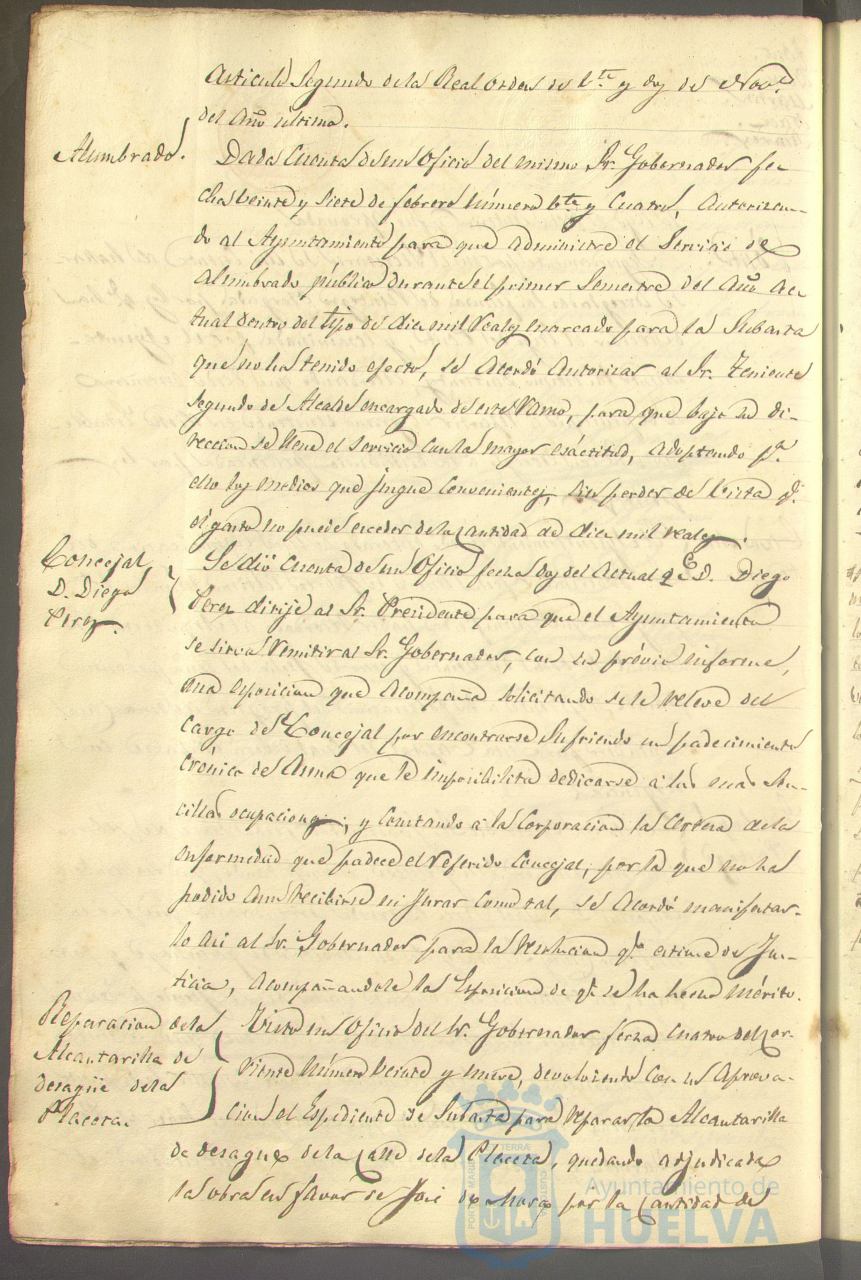 Articulo Segundo de la Real orden de vte. y dos de Novre.
del Año último.
Alumbrado.
Dada Cuenta de un Oficio del mismo Sr. Gobernador fe-
cha veinte y siete de febrero número vte. y Cuatro, Autorizan-
do al Ayuntamiento para que administre el Servicio de
Alumbrado público durante el primer Semestre del Año Ac-
tual dentro del tipo de diez mil reales marcado para la Subasta
que no ha tenido efecto, se Acordó Autorizar al Sr. Teniente
Segundo de Alcalde encargado de este Ramo, para que bajo su di-
reccion se llene el servicio con la mayor esáctitud, adoptando pa.
ello los medios que juzgue convenientes, sin perder de vista qe.
el gasto no puede esceder de la Cantidad de diez mil reales.
Concejal
D. Diego
Perez.
Se dió Cuenta de un Oficio fecha dos del Actual qe. D. Diego
Perez dirije al Sr. Presidente para que el Ayuntamiento
se sirva remitir al Sr. Gobernador, con su prévio informe,
una esposicion que Acompaña solicitando se le releve del
Cargo de Concejal por encontrarse Sufriendo un padecimiento
Crónico de Asma que le imposibilita dedicarse á las más Sen-
cillas ocupaciones; y Constando á la Corporacion la Certeza de la
enfermedad que padece el referido Concejal, por la que no ha
podido aun recibirse ni Jurar Como tal, se Acordó manifestar-
lo Asi al Sr. Gobernador para la resolucion qe. estime de Jus-
ticia, Acompañandole la Esposicion de qe. se ha hecho mérito.
Reparacion de la
Alcantarilla de
desagüe de la
Placeta.
Visto un Oficio del Sr. Gobernador fecha Cuatro del Cor-
riente número veinte y nueve, devolviendo Con su Aproba-
cion el Espediente de Subasta para reparar la Alcantarilla
de desague de la Calle de la Placeta, quedando adjudicada
la obra en favor de José de Mora por la Cantidad de
Ayuntamiento de
HUELVA